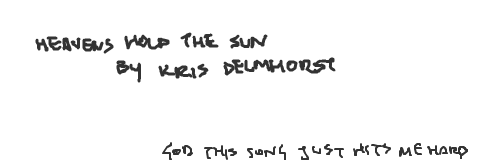 HEAVENS HOLD THE SUN
BY KRIS DELMHORST
GOD THIS SONG JUST HITS ME HARD